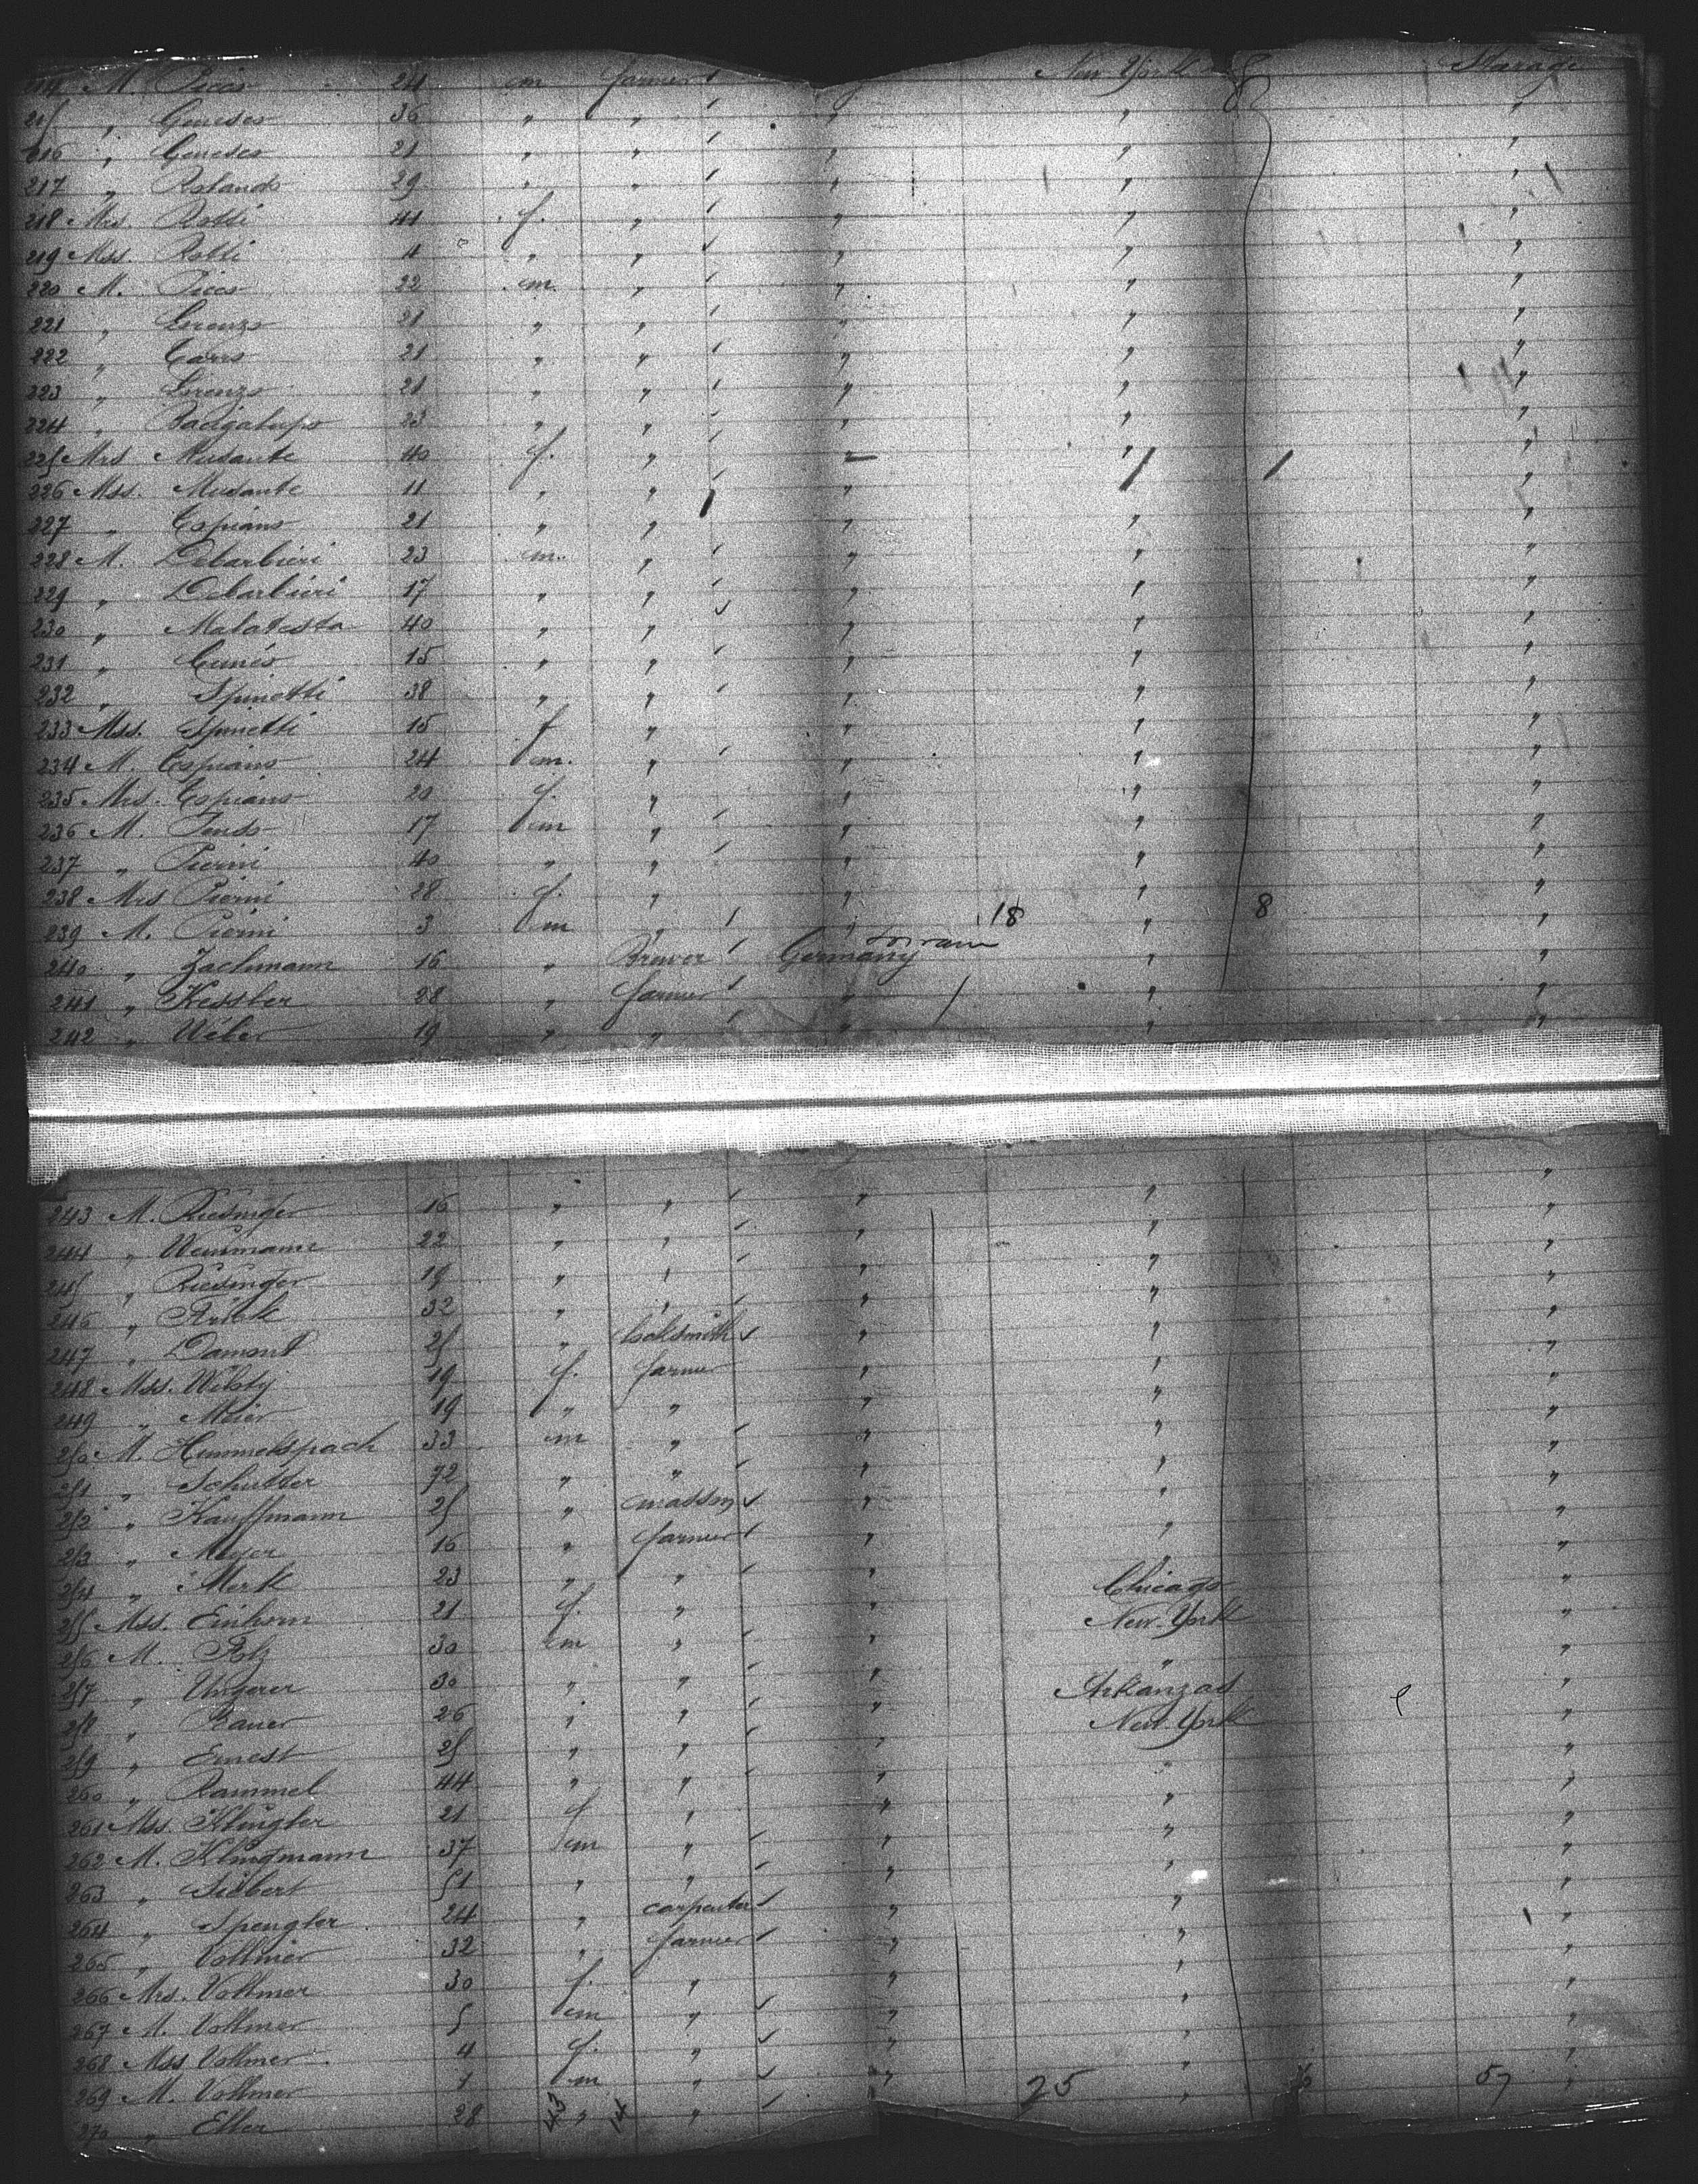 214 M. 24 m farmer New York
215 " Geneses 36 " " " " "
216 " Geneses 21 " " " " "
217 " Rolando 29 " " " " "
218 Mrs. Rolli 41 f. " " " "
219 Mss. Rolli 11 " " " " "
220 M. Picco 22 m. " " " "
221 " Lorenzo 21 " " " " "
222 " 21 " " " " "
223 " Lorenzo 21 " " " " "
224 " Bacigalupo 23 " " " " "
225 Mrs Musante 40 f. " " " "
226 Mss. Musante 11 " " " " "
227 " Copiano 21 " " " " "
228 M. Debarbieri 23 m. " " " "
229 " Debarbieri 17 " " " " "
230 " Malatesta 40 " " " " "
231 " Cuneo 15 " " " " "
232 " Spinetti 38 " " " " "
233 Mss. Spinetti 15 f " " " "
234 M. Copiano 24 m. " " " "
235 Mrs. Copiano 20 f. " " " "
236 M. 17 m " " " "
237 " Pierini 40 " " " " "
238 Mrs Pierini 28 f. " " " "
239 M. Pierini 3 m " " 18 " 8 "
240 " Zachmann 16 " Brewer Germany " "
241 " Kessler 28 " farmer " " "
242 " Weber 19 " " " " "
243 M. Riesinger 16 " " " " "
244 " Weinmann 22 " " " " "
245 " Riesinger 19 " " " " "
246 " 32 " " " " "
247 " Damont 25 " locksmith " " "
248 Mss. 19 f. farmer " " "
249 " Meier 19 " " " " "
250 M. Hummelspach 33 m " " " "
251 " Schutter 72 " " " " "
252 " Kauffmann 25 " masson " " "
253 " Meyer 16 " farmer " " "
254 " Merk 23 " " " Chicago "
255 Mss. Einhorn 21 f. " " New York "
256 M. 30 m " " " "
257 " Ungerer 30 " " " Arkanzas "
258 " 26 " " " New York "
259 " Ernest 25 " " " " "
260 " Rammel 44 " " " " "
261 Mss. Klingler 21 f " " " "
262 M. Klingmann 37 m " " " "
263 " Siebert 51 " " " " "
264 " Spengler 24 " carpenter " " "
265 " Vollmer 32 " farmer " " "
266 Mrs. Vollmer 30 f. " " " "
267 M. Vollmer 5 m " " " "
268 Mss Vollmer 4 f. " " " "
269 M. Vollmer 1 m " " 25 " 57 "
270 " Eller 28 43 " 14 " "